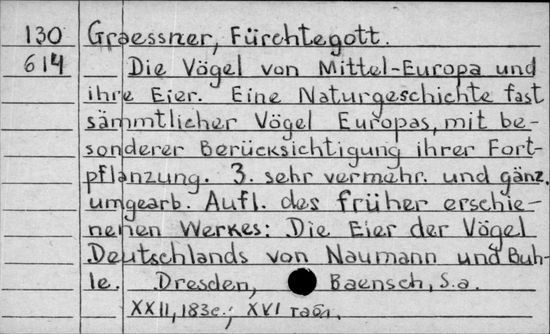 130 Graessner, Fürchtegott.
614 Die Vögel von Mittel-Europa und
ihre Eier. Eine Naturgeschichte fast
sämmtlicher Vögel Europas, mit be-
sonderer Berücksichtigung ihrer Fort-
pflanzung. 3. sehr vermehr. und gänz.
umgearb. Aufl. des früher erschie-
nenen Werkes: Die Eier der Vögel
Deutschlands von Naumann und Buh-
le. Dresden, Baensch, S.a.
XXII, 183c.; XVI табл.